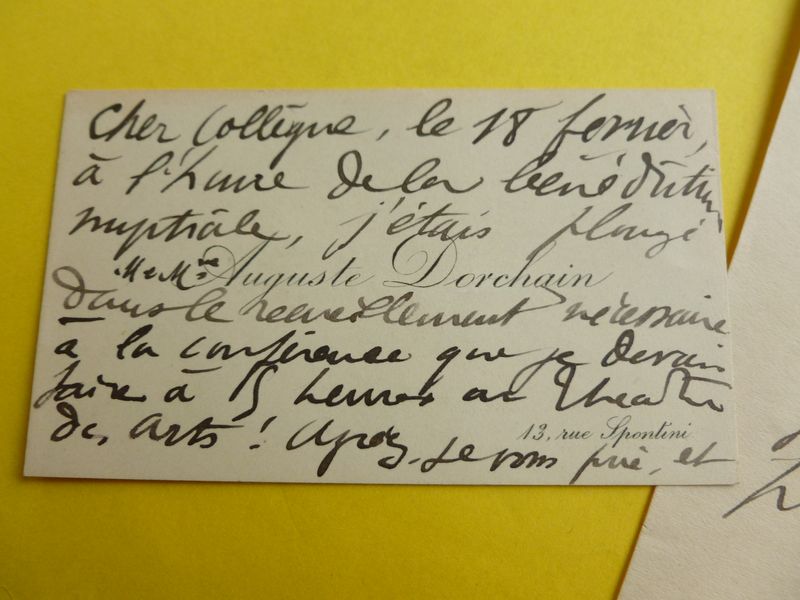 Cher Collègue, le 18 février,
à l'heure de la bénédiction
nuptiale, j'étais plongé
M. & Mme Auguste Dorchain
dans le recueillement nécessaire
à la conférence que je devais
faire à 5 heures au Théâtre
des Arts! Agréez, je vous prie, et
13, rue Spontini